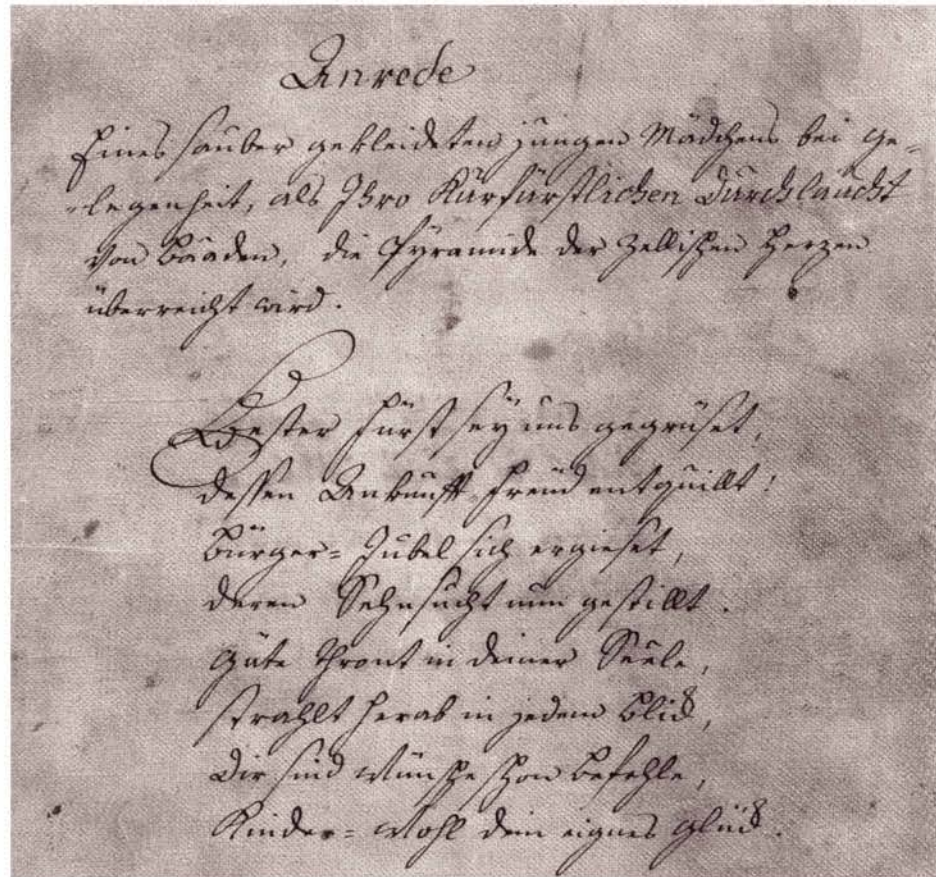 Anrede
Eines sauber gekleideten jungen Mädchens bei Ge=
=legenheit, als Ihro Kurfürstlichen Durchlaucht
von Baaden, die Pyramide der Zellischen Herzen
überreicht wird.
Bester Fürst sey uns gegrüset,
dessen Ankunfft Freud entquillt!
Bürger= Jubel sich ergieset,
deren Sehnsucht nun gestillt.
Güte thront in deiner Seele,
strahlt herab in jedem Blick,
Dir sind Wünsche schon Befehle,
Kinder= Wohl dein eignes Glück.